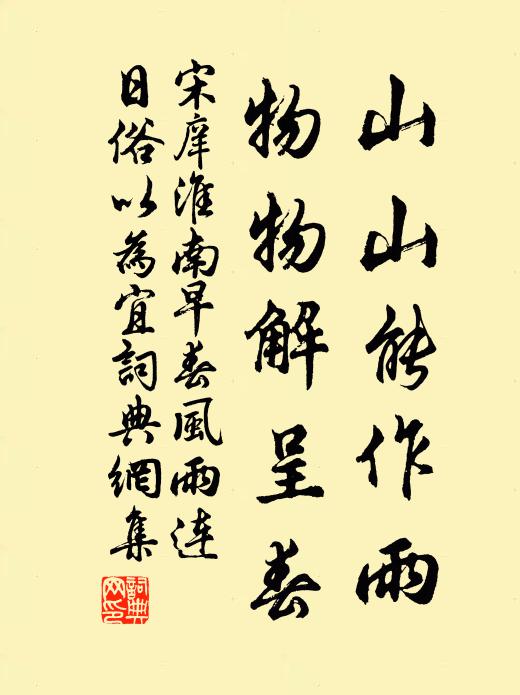 山山能作雨
物物解呈春
宋庠淮南早春風雨連
日俗以為宜詞典網集
詞典
网印